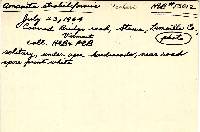 Amanita strobiliformis H&B #13012
July 23, 1964
Conrad Bridge road, Stowe, Lamoille Co.
Vermont
photo
coll. H&B
solitary, under open hardwoods, near road
spore print white